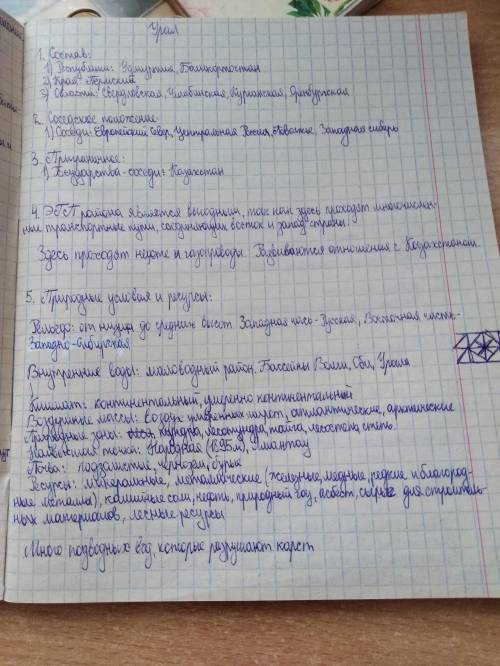 Урал
1. Состав:
1) Республики: Удмуртия, Башкортостан
2) Край: Пермский
3) Области: Свердловская, Челябинская, Курганская, Оренбургская
2. Соседское положение
1) Соседи: Европейский Север, Центральная Россия, Поволжье. Западная сибирь
3. Приграничное:
1) Государства-соседи: Казахстан
4. ЭГП района является выгодным, так как здесь проходят многочислен-
ные транспортные пути, соединяющие восток и запад страны.
Здесь проходят нефте и газопроводы. Развиваются отношения с Казахстаном.
5. Природные условия и ресурсы:
Рельеф: от низких до средних высот Западная часть-Русская, Восточная часть-
Западно-Сибирская
Внутренние воды: маловодный район. Бассейны Волги, Оби, Урала
Климат: континентальный, умеренно континентальный
Воздушные массы: воздух умеренных широт, атлантические, арктические
Природные зоны: тундра, лесотундра, тайга, лесостепь, степь.
Наивысшая точка: Народная (1895м), Ямантау
Почва: подзолистые, чернозем, бурые
Ресурсы: минеральные, металлические (железные, медные, редкие и благород-
ные металлы), калийные соли, нефть, природный газ, асбест, сырье для строитель-
ных материалов, лесные ресурсы
Много подводных вод, которые разрушают карст